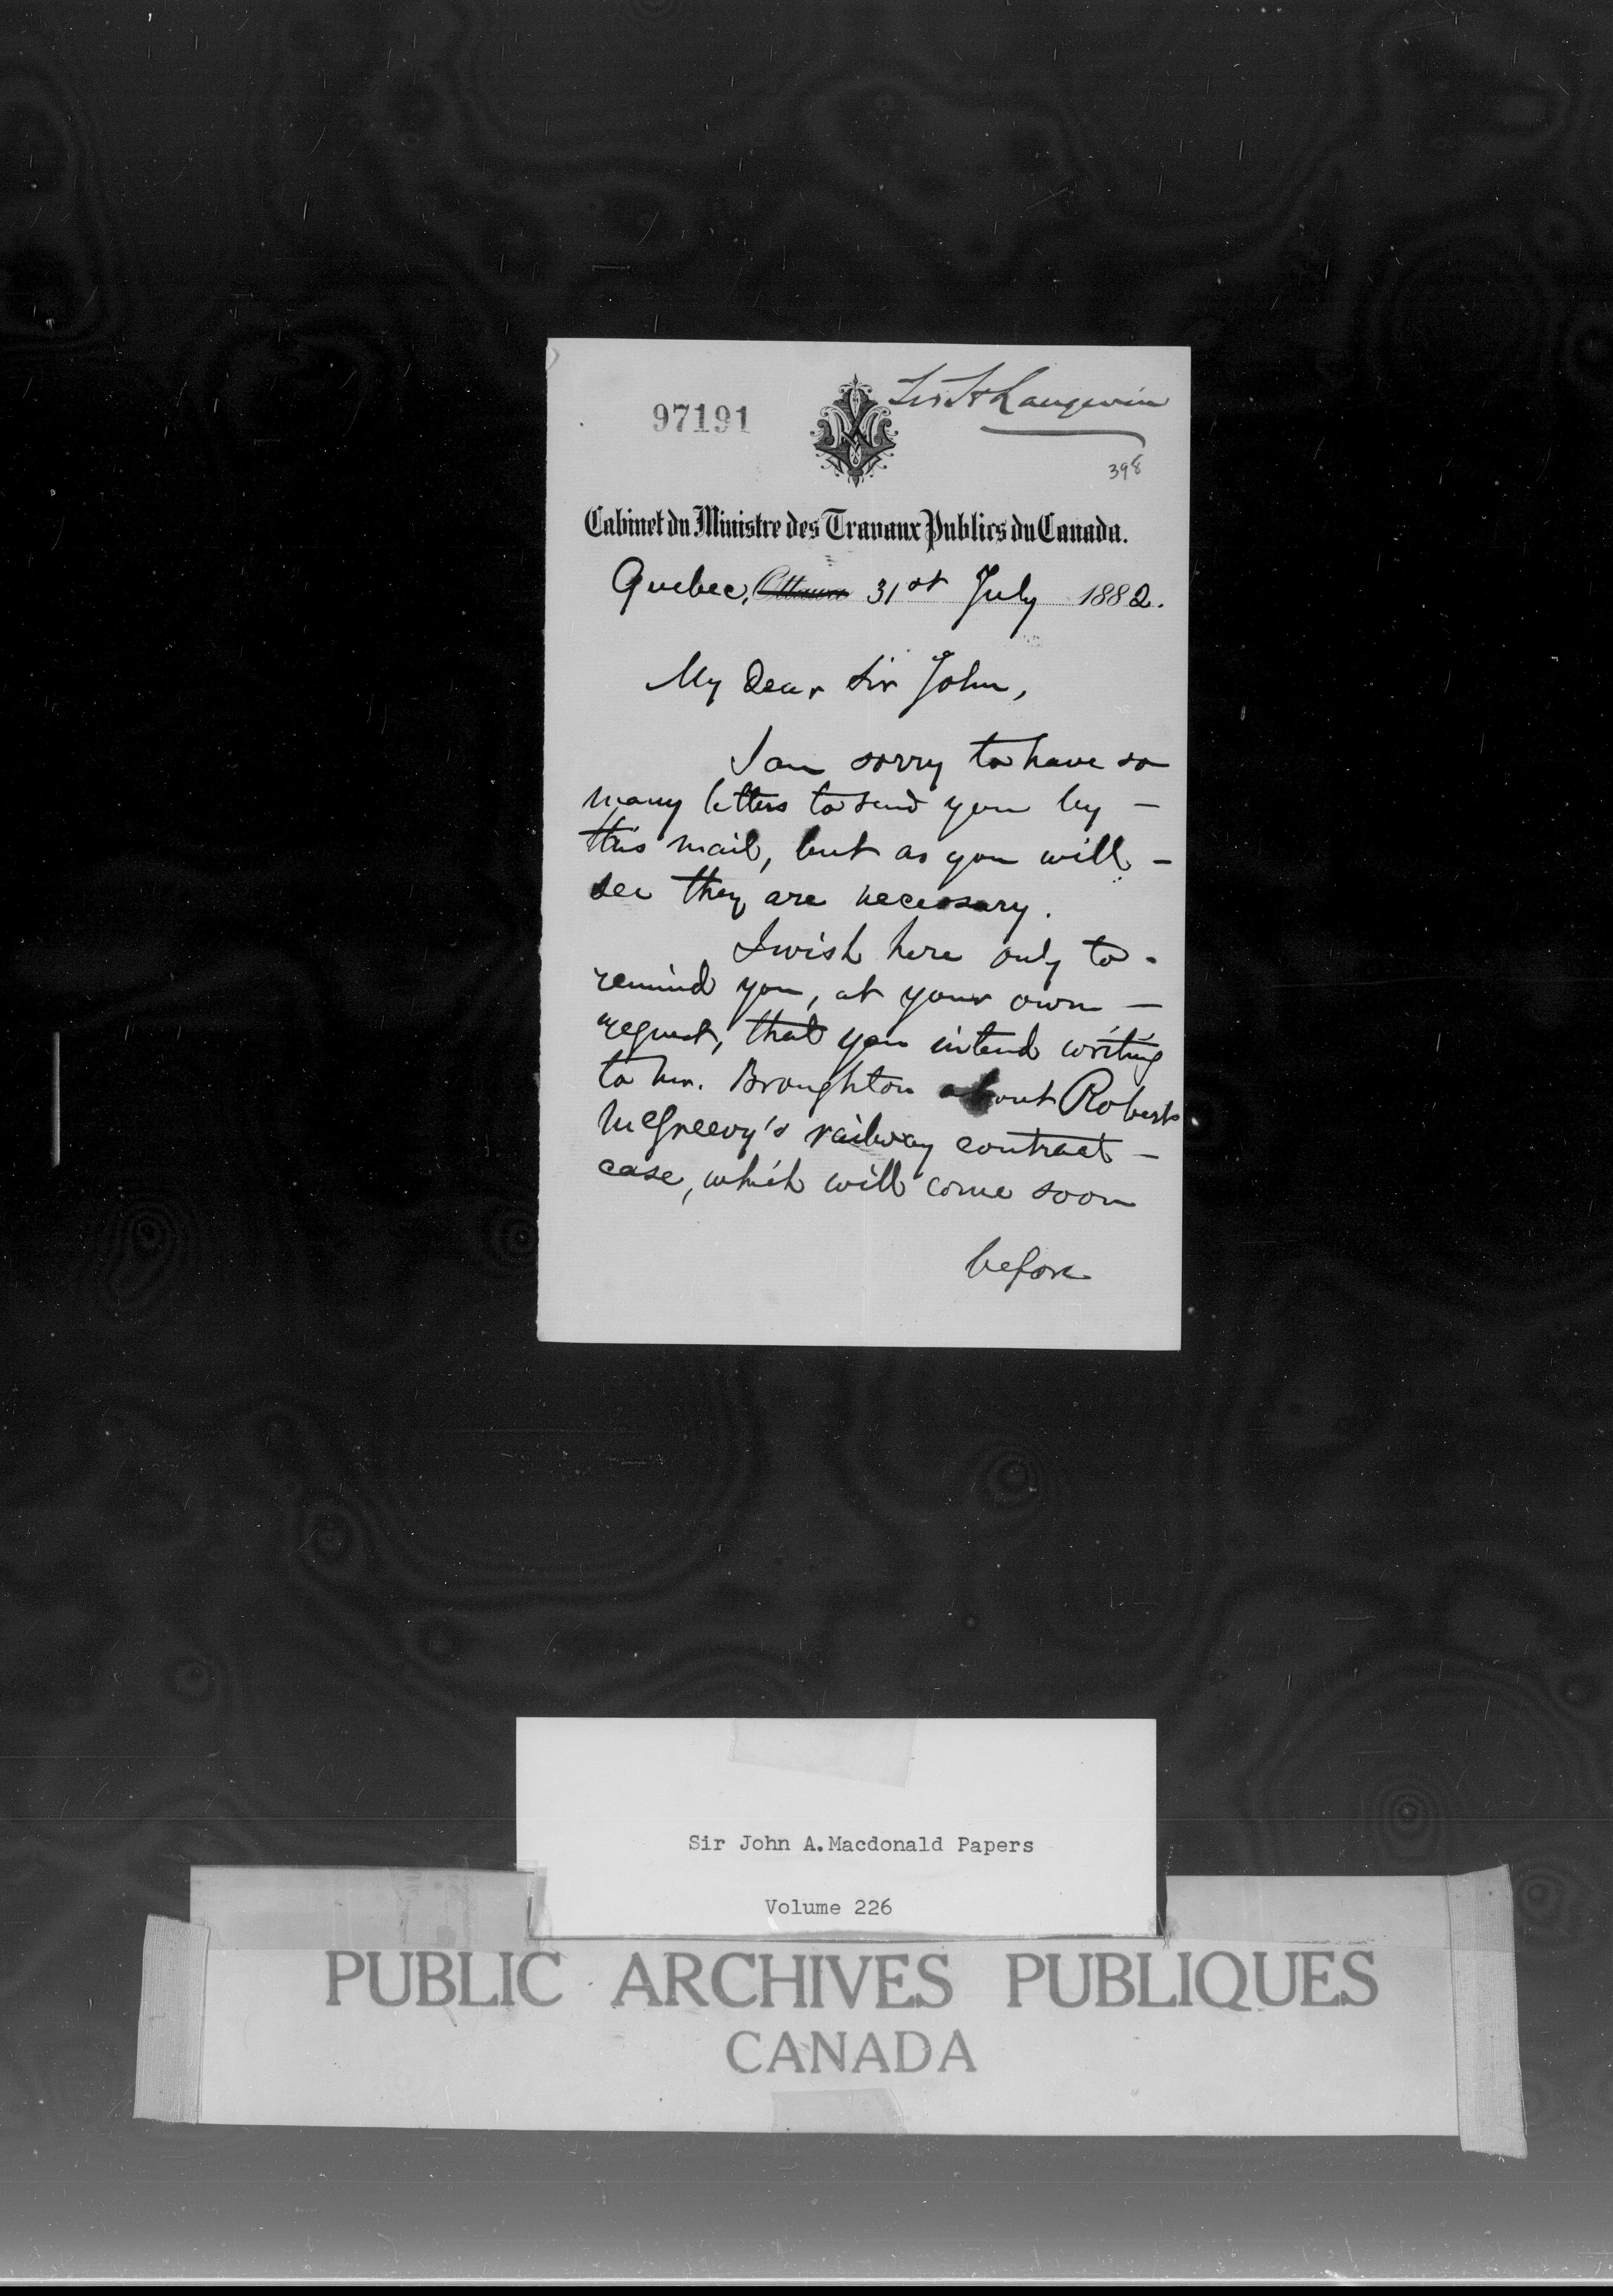 97191
Sir H Langevin
398
Cabinet du Ministre des Travaux Publics du Canada.
Quebec, Ottawa 31st July 1882.
My Dear Sir John,
I am sorry to have so
many letters to send you by –
this mail, but as you will –
see they are necessary.
I wish here only to -
remind you, at your own –
request, that you intend writing
to Mr. Broughton about Robert
McGreevy's railway contract –
case, which will come soon
before
Sir John A. Macdonald Papers
Volume 226
PUBLIC ARCHIVES PUBLIQUES
CANADA